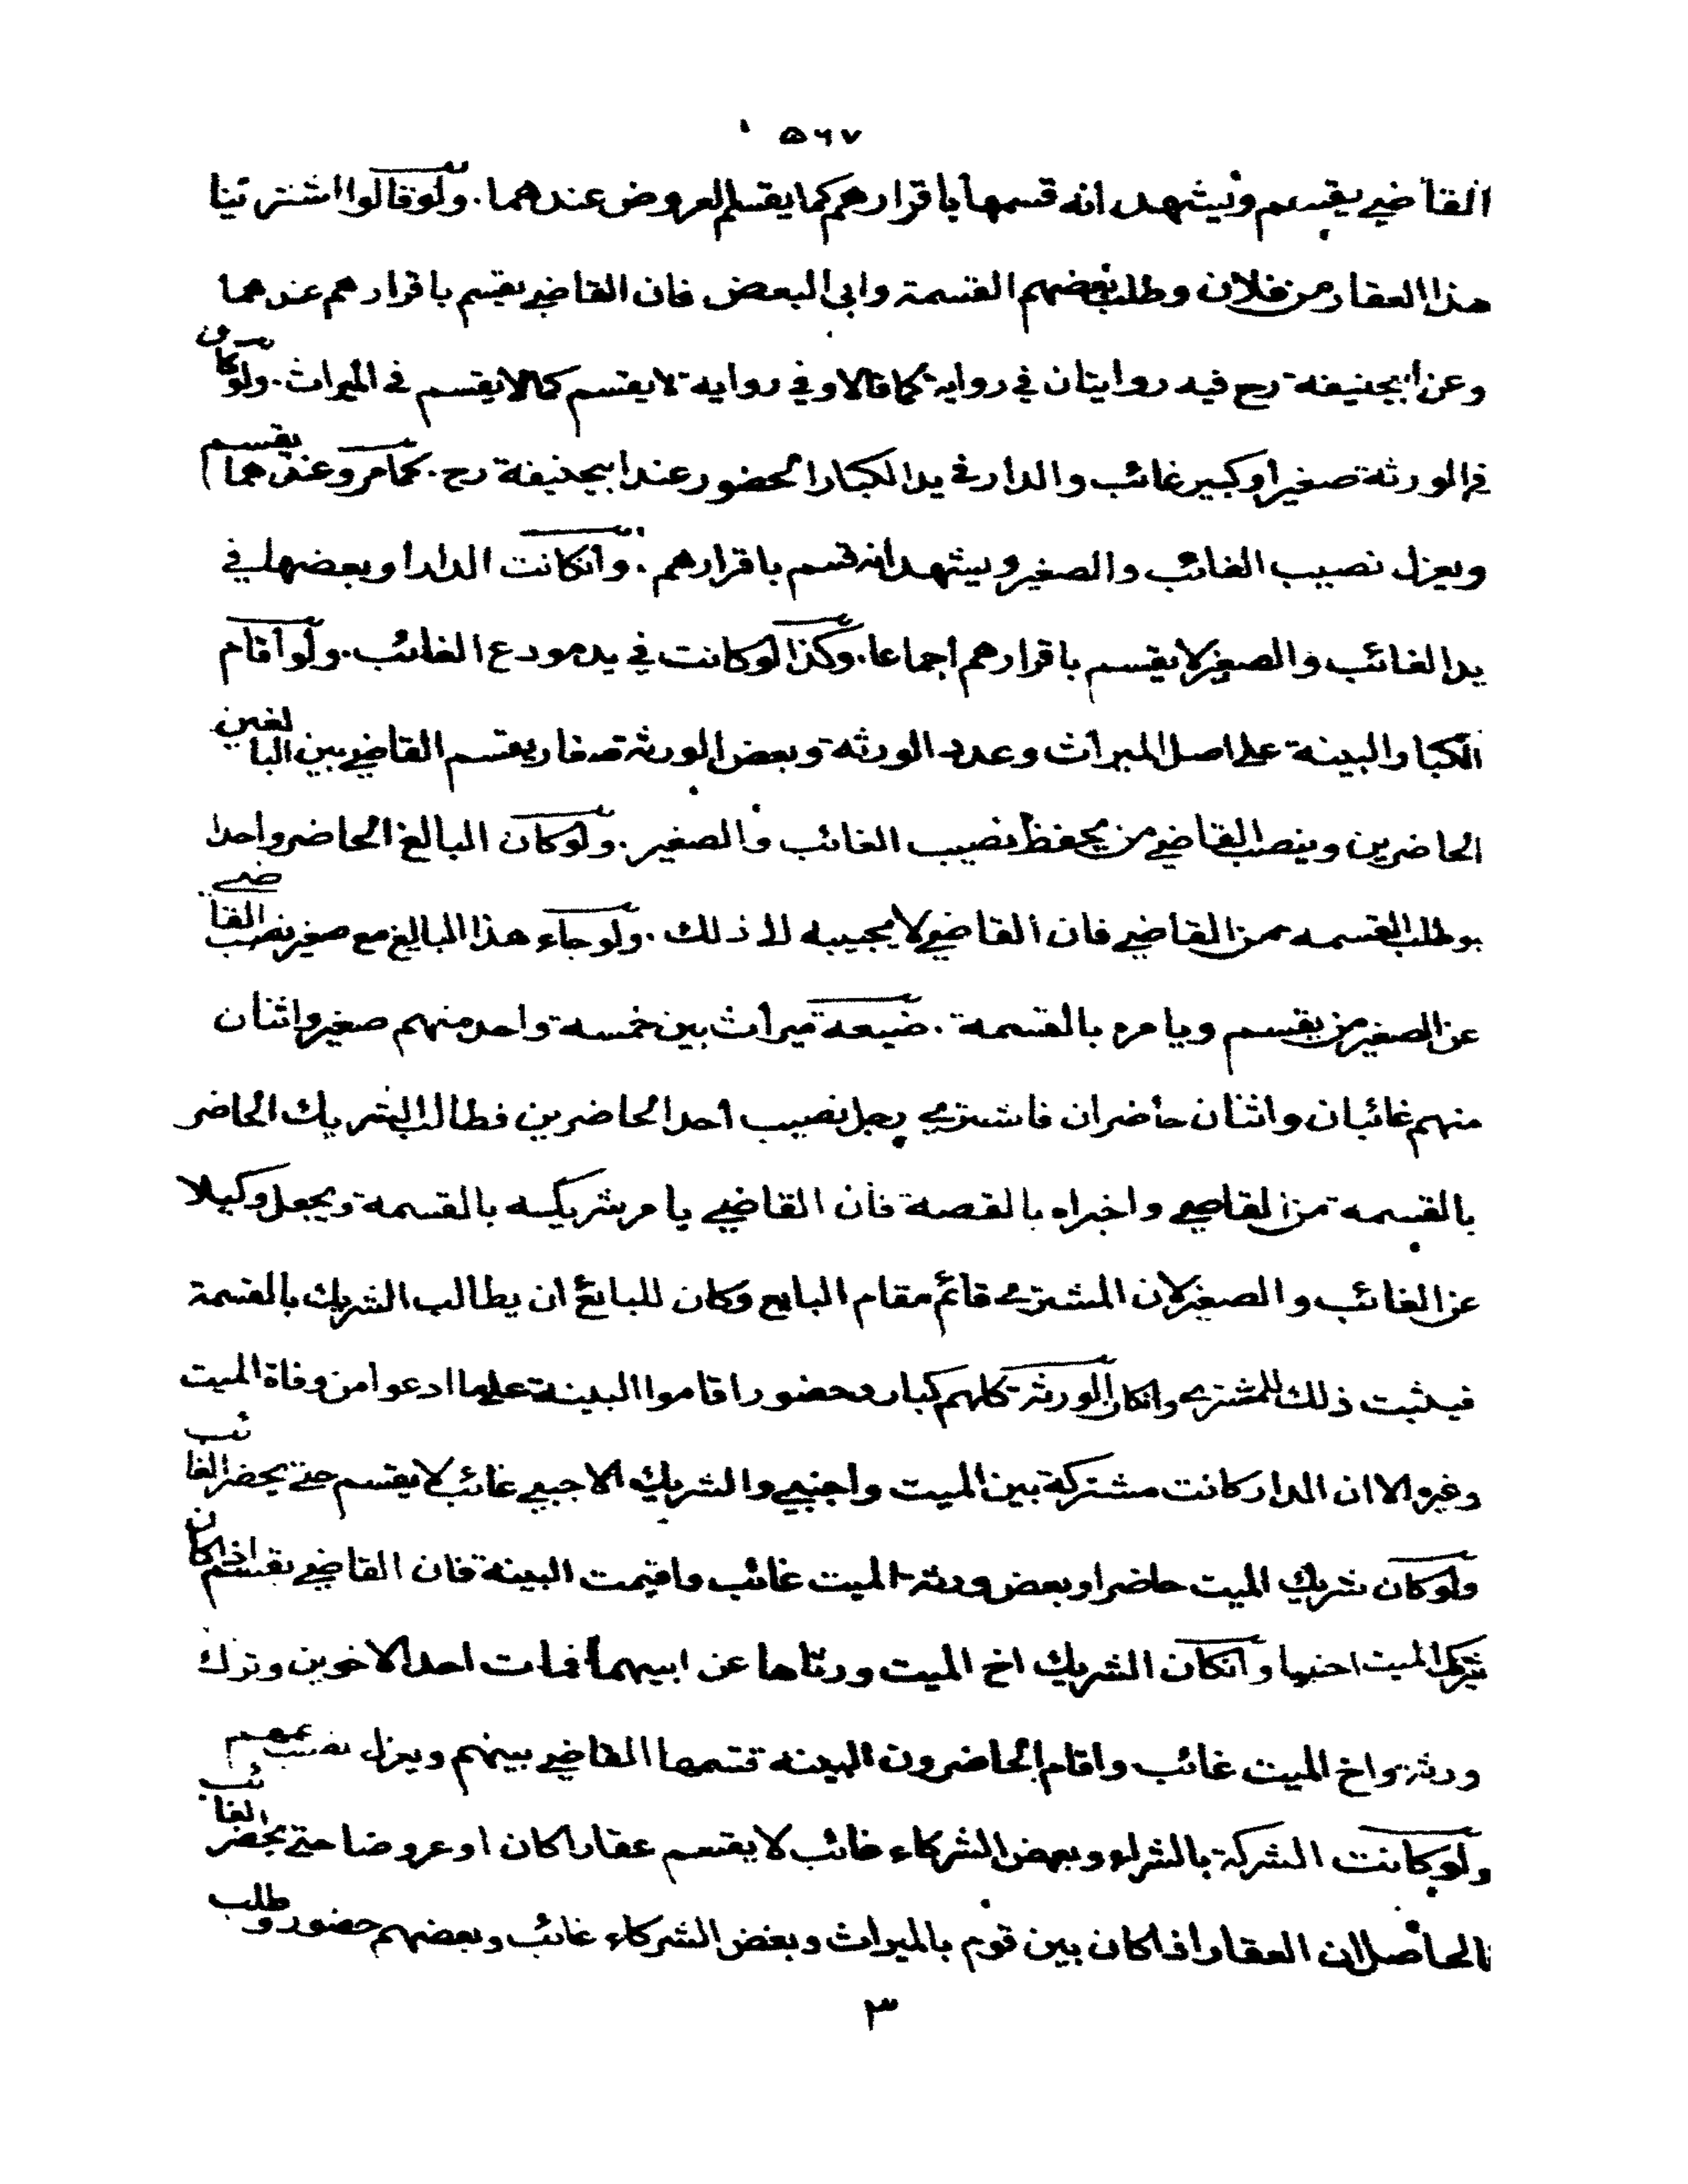 ٥٦٧
القاضي يقسم ويشهد انه قسمها باقرارهم كما يقسم العروض عندهما . ولو قالوا اشترينا
هذا العقار من فلان وطلب بعضهم القسمة وابى البعض فان القاضي يقسم باقرارهم عندهما
وعن ابيحنيفة رح فيه روايتان في رواية كما قالا وفي رواية لا يقسم كما لا يقسم في الميراث . ولو كان
في الورثة صغير او كبير غائب والدار في يد الكبار الحضور عند ابيحنيفة رح . كما مر وعندهما يقسم
ويعزل نصيب الغائب والصغير ويشهد انه قسم باقرارهم . وانكانت الدار او بعضها في
يد الغائب والصغير لا يقسم باقرارهم اجماعا . وكذا لو كانت في يد مودع الغائب . ولو اقام
الكبار البينة على اصل الميراث وعدد الورثة وبعض الورثة صغار يقسم القاضي بين البالغين
الحاضرين وينصب القاضي من يحفظ نصيب الغائب والصغير . ولو كان البالغ الحاضر واحدا
وطلب القسمة من القاضي فان القاضي لا يجيبه الى ذلك . ولو جاء هذا البالغ مع صغير نصب القاضي
عن الصغير من يقسم ويامره بالقسمة . ضيعة ميراث بين خمسة واحد منهم صغير واثنان
منهم غائبان واثنان حاضران فاشترى رجل نصيب احد الحاضرين فطالب الشريك الحاضر
بالقسمة من القاضي واخبراه بالقصة فان القاضي يامر شريكه بالقسمة ويجعل وكيلا
عن الغائب والصغير لان المشتري قائم مقام البايع وكان للبائع ان يطالب الشريك بالقسمة
فيثبت ذلك للمشتري وانكان الورثة كلهم كبار وحضور اقاموا البينة على ما ادعوا من وفاة الميت
وغيره الا ان الدار كانت مشتركة بين الميت واجنبي والشريك الاجنبي غائب لا يقسم حتى يحضر الغائب
ولو كان شريك الميت حاضرا وبعض ورثة الميت غائب واقيمت البينة فان القاضي يقسم اذا كان
شريك الميت اجنبيا وانكان الشريك اخ الميت ورثاها عن ابيهما فمات احد الاخوين وترك
ورثة واخ الميت غائب واقام الحاضرون البينة قسمها القاضي بينهم ويعزل نصيب
ولو كانت الشركة بالشراء وبعض الشركاء غائب لا يقسم عقارا كان او عروضا حتى يحضر الغائب
فالحاصل ان العقار اذا كان بين قوم بالميراث وبعض الشركاء غائب وبعضهم حضور وطلب
٣